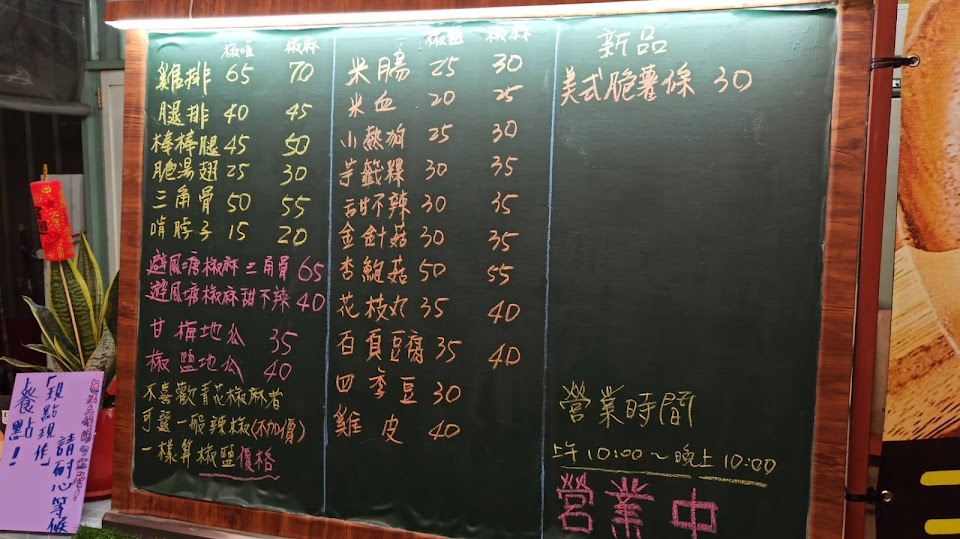 椒鹽 椒麻
雞排 65 70
腿排 40 45
棒棒腿 45 50
脆湯翅 25 30
三角骨 50 55
啃脖子 15 20
避風塘椒麻三角骨 65
避風塘椒麻甜不辣 40
甘梅地瓜 35
椒鹽地瓜 40
不喜歡青花椒麻者
可選一般辣椒(不加價)
一樣算椒鹽價格
椒鹽 椒麻
米腸 25 30
米血 20 25
小熱狗 25 30
芋籤粿 30 35
甜不辣 30 35
金針菇 30 35
杏鮑菇 50 55
花枝丸 35 40
百頁豆腐 35 40
四季豆 30
雞皮 40
新品
美式脆薯條 30
營業時間
上午10:00~晚上10:00
營業中
餐點!
「現點現作」
請耐心等候